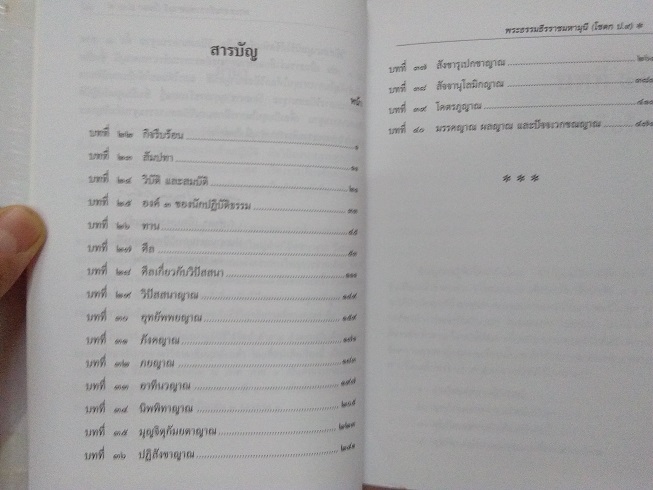 สารบัญ
หน้า
บทที่ ๒๒ กิจรีบร้อน
บทที่ ๒๓ สัมปทา
บทที่ ๒๔ วิบัติ และสมบัติ
บทที่ ๒๕ องค์ ๓ ของนักปฏิบัติธรรม
บทที่ ๒๖ ทาน
บทที่ ๒๗ ศีล
บทที่ ๒๘ ศีลเกี่ยวกับวิปัสสนา
บทที่ ๒๙ วิปัสสนาญาณ
บทที่ ๓๐ อุทยัพพยญาณ
บทที่ ๓๑ ภังคญาณ
บทที่ ๓๒ ภยญาณ
บทที่ ๓๓ อาทีนวญาณ
บทที่ ๓๔ นิพพิทาญาณ
บทที่ ๓๕ มุญจิตุกัมยตาญาณ
บทที่ ๓๖ ปฏิสังขาญาณ
พระธรรมธีรราชมหามุนี (โชดก ป.๙)
บทที่ ๓๗ สังขารุเปกขาญาณ
บทที่ ๓๘ สัจจานุโลมิกญาณ
บทที่ ๓๙ โคตรภูญาณ
บทที่ ๔๐ มรรคญาณ ผลญาณ และปัจจเวกขณญาณ
* * *